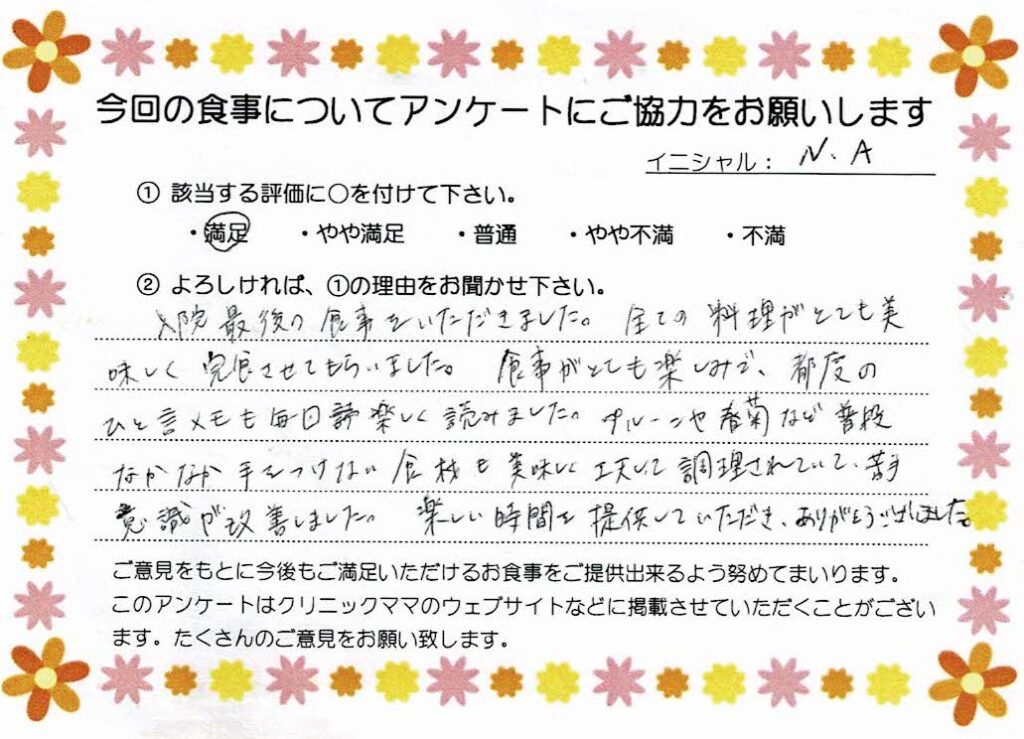 今回の食事についてアンケートにご協力をお願いします
イニシャル： N.A
① 該当する評価に○を付けて下さい。
・満足 ・やや満足 ・普通 ・やや不満 ・不満
② よろしければ、①の理由をお聞かせ下さい。
入院最後の食事をいただきました。全ての料理がとても美
味しく完食させてもらいました。食事がとても楽しみで、都度の
ひと言メモも毎回 楽しく読みました。プルーンや春菊など普段
なかなか手をつけない食材も美味しく工夫して調理されていて、苦手
意識が改善しました。楽しい時間を提供していただき、ありがとうございました。
ご意見をもとに今後もご満足いただけるお食事をご提供出来るよう努めてまいります。
このアンケートはクリニックママのウェブサイトなどに掲載させていただくことがござい
ます。たくさんのご意見をお願い致します。